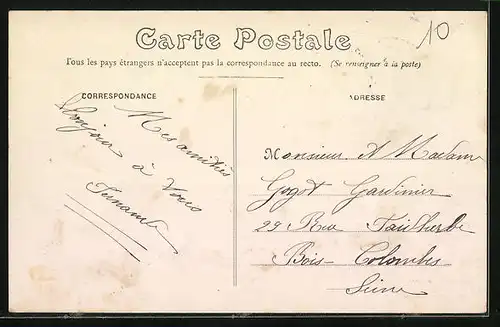 10
Carte Postale
Tous les pays étrangers n'acceptent pas la correspondance au recto. (Se renseigner à la poste)
CORRESPONDANCE
ADRESSE
Mes amitiés
Bonjour à Vous
Monsieur et Madame
Gogot Gardinier
29 Rue Faidherbe
Bois-Colombes
Seine